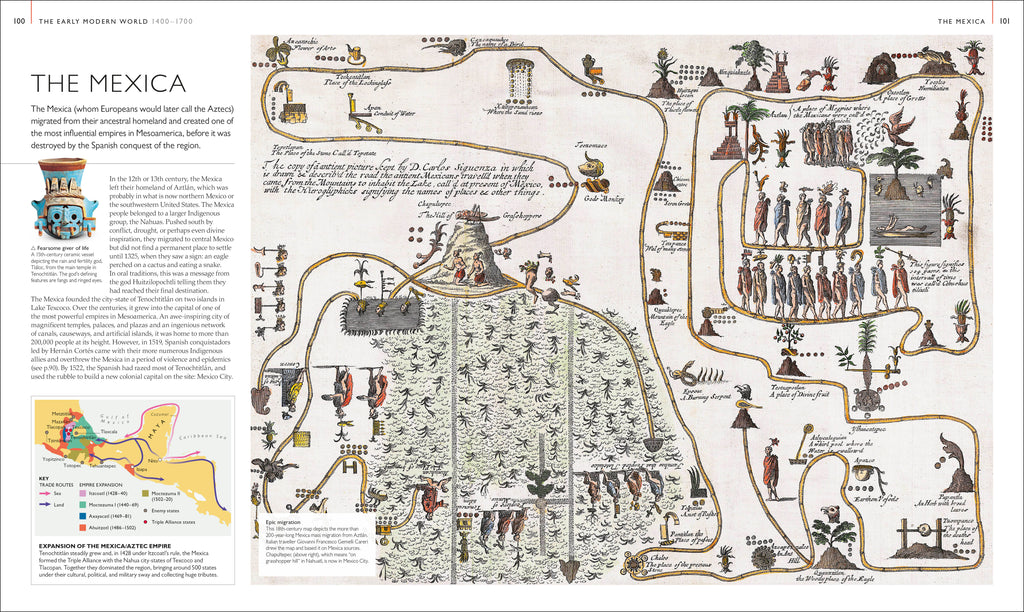 100
THE EARLY MODERN WORLD 1400–1700
THE MEXICA
101
THE MEXICA
The Mexica (whom Europeans would later call the Aztecs)
migrated from their ancestral homeland and created one of
the most influential empires in Mesoamerica, before it was
destroyed by the Spanish conquest of the region.
In the 12th or 13th century, the Mexica
left their homeland of Aztlán, which was
probably in what is now northern Mexico or
the southwestern United States. The Mexica
people belonged to a larger Indigenous
group, the Nahuas. Pushed south by
conflict, drought, or perhaps even divine
inspiration, they migrated to central Mexico
but did not find a permanent place to settle
until 1325, when they saw a sign: an eagle
perched on a cactus and eating a snake.
In oral traditions, this was a message from
the god Huitzilopochtli telling them they
had reached their final destination.
The Mexica founded the city-state of Tenochtitlán on two islands in
Lake Texcoco. Over the centuries, it grew into the capital of one of
the most powerful empires in Mesoamerica. An awe-inspiring city of
magnificent temples, palaces, and plazas and an ingenious network
of canals, causeways, and artificial islands, it was home to more than
200,000 people at its height. However, in 1519, Spanish conquistadors
led by Hernán Cortés came with their more numerous Indigenous
allies and overthrew the Mexica in a period of violence and epidemics
(see p.90). By 1522, the Spanish had razed most of Tenochtitlán, and
used the rubble to build a new colonial capital on the site: Mexico City.
△ Fearsome giver of life
A 15th-century ceramic vessel
depicting the rain and fertility god,
Tláloc, from the main temple in
Tenochtitlán. The god's defining
features are fangs and ringed eyes.
Metztitlán
Tlacopan
Texcoco
Tenochtitlán
Tlaxcala
Yopitzinco
Tututepec
Tehuantepec
Xicalanco
Gulf of
Mexico
Cozumel
MAYA
Caribbean Sea
Nito
KEY
TRADE ROUTES
Sea
Land
EMPIRE EXPANSION
Itzcoatl (1428–40)
Moctezuma I (1440–69)
Axayacatl (1469–81)
Ahuitzotl (1486–1502)
Moctezuma II
(1502–20)
Enemy states
Triple Alliance states
EXPANSION OF THE MEXICA/AZTEC EMPIRE
Tenochtitlán steadily grew and, in 1428 under Itzcoatl's rule, the Mexica
formed the Triple Alliance with the Nahua city states of Texcoco and
Tlacopan. Together they dominated the region, bringing around 500 states
under their cultural, political, and military sway and collecting huge tributes.
Flower of Arto
The name of a Bird
Place of the Lookinglass
Apan
Conduit of Water
Where the Sand rises
Tepetlapan
The Place of the Stone Call'd Tepetate
The copy of a antient picture kept by D. Carlos Siguenza in which
is drawn & describ'd the road the antient Mexicans travell'd when they
came from the Mountains to inhabit the Lake, call'd at present of Mexico,
with the Hieroglyphicks signifying the names of places & other things.
Chapultepec
The Hill of Grashoppers
Gods Monkey
The place of
A place of Grotto
Humiliation
Aztlan
A place of Magpies where
the Mexicans were call'd
Mountain of the
Eagle
A Burning Serpent
A place of Divine fruit
A whirl pool where the
Water is swallow'd
Earthen Vessels
An Herb with broad
leaves
The place of
the deaths
head
Chalco
The place of the precious
Hill
the Woody place of the Eagle
Epic migration
This 18th-century map depicts the more than
200-year-long Mexica mass migration from Aztlán.
Italian traveller Giovanni Francesco Gemelli Careri
drew the map and based it on Mexica sources.
Chapultepec (above right), which means "on
grasshopper hill" in Nahuatl, is now in Mexico City.